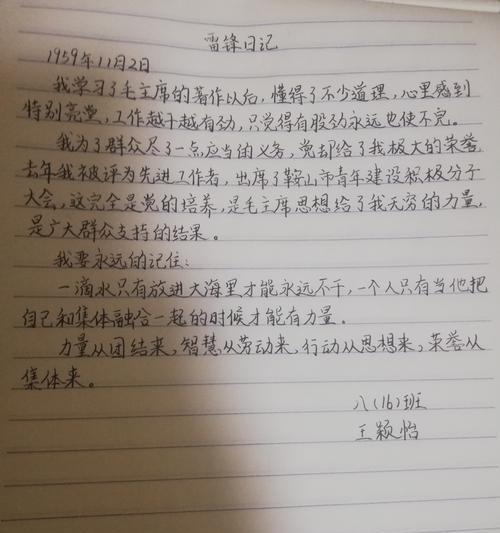 雷锋日记
1959年11月2日
我学习了毛主席的著作以后，懂得了不少道理，心里感到
特别亮堂，工作越干越有劲，只觉得有股劲永远也使不完。
我为了群众尽了一点应当的义务，党却给了我极大的荣誉，
去年我被评为先进工作者，出席了鞍山市青年建设积极分子
大会，这完全是党的培养，是毛主席思想给了我无穷的力量，
是广大群众支持的结果。
我要永远的记住：
一滴水只有放进大海里才能永远不干，一个人只有当他把
自己和集体融合一起的时候才能有力量．
力量从团结来，智慧从劳动来，行动从思想来，荣誉从
集体来。
八（16）班
王颖怡